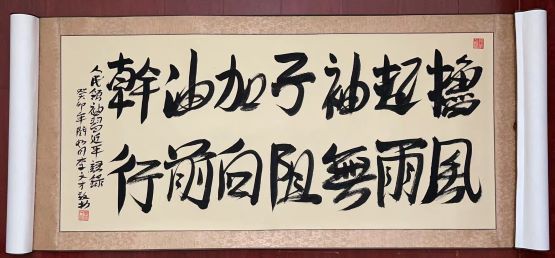 擼起袖子加油幹
風雨無阻向前行
人民領袖習近平語錄
癸卯年 李文才敬書